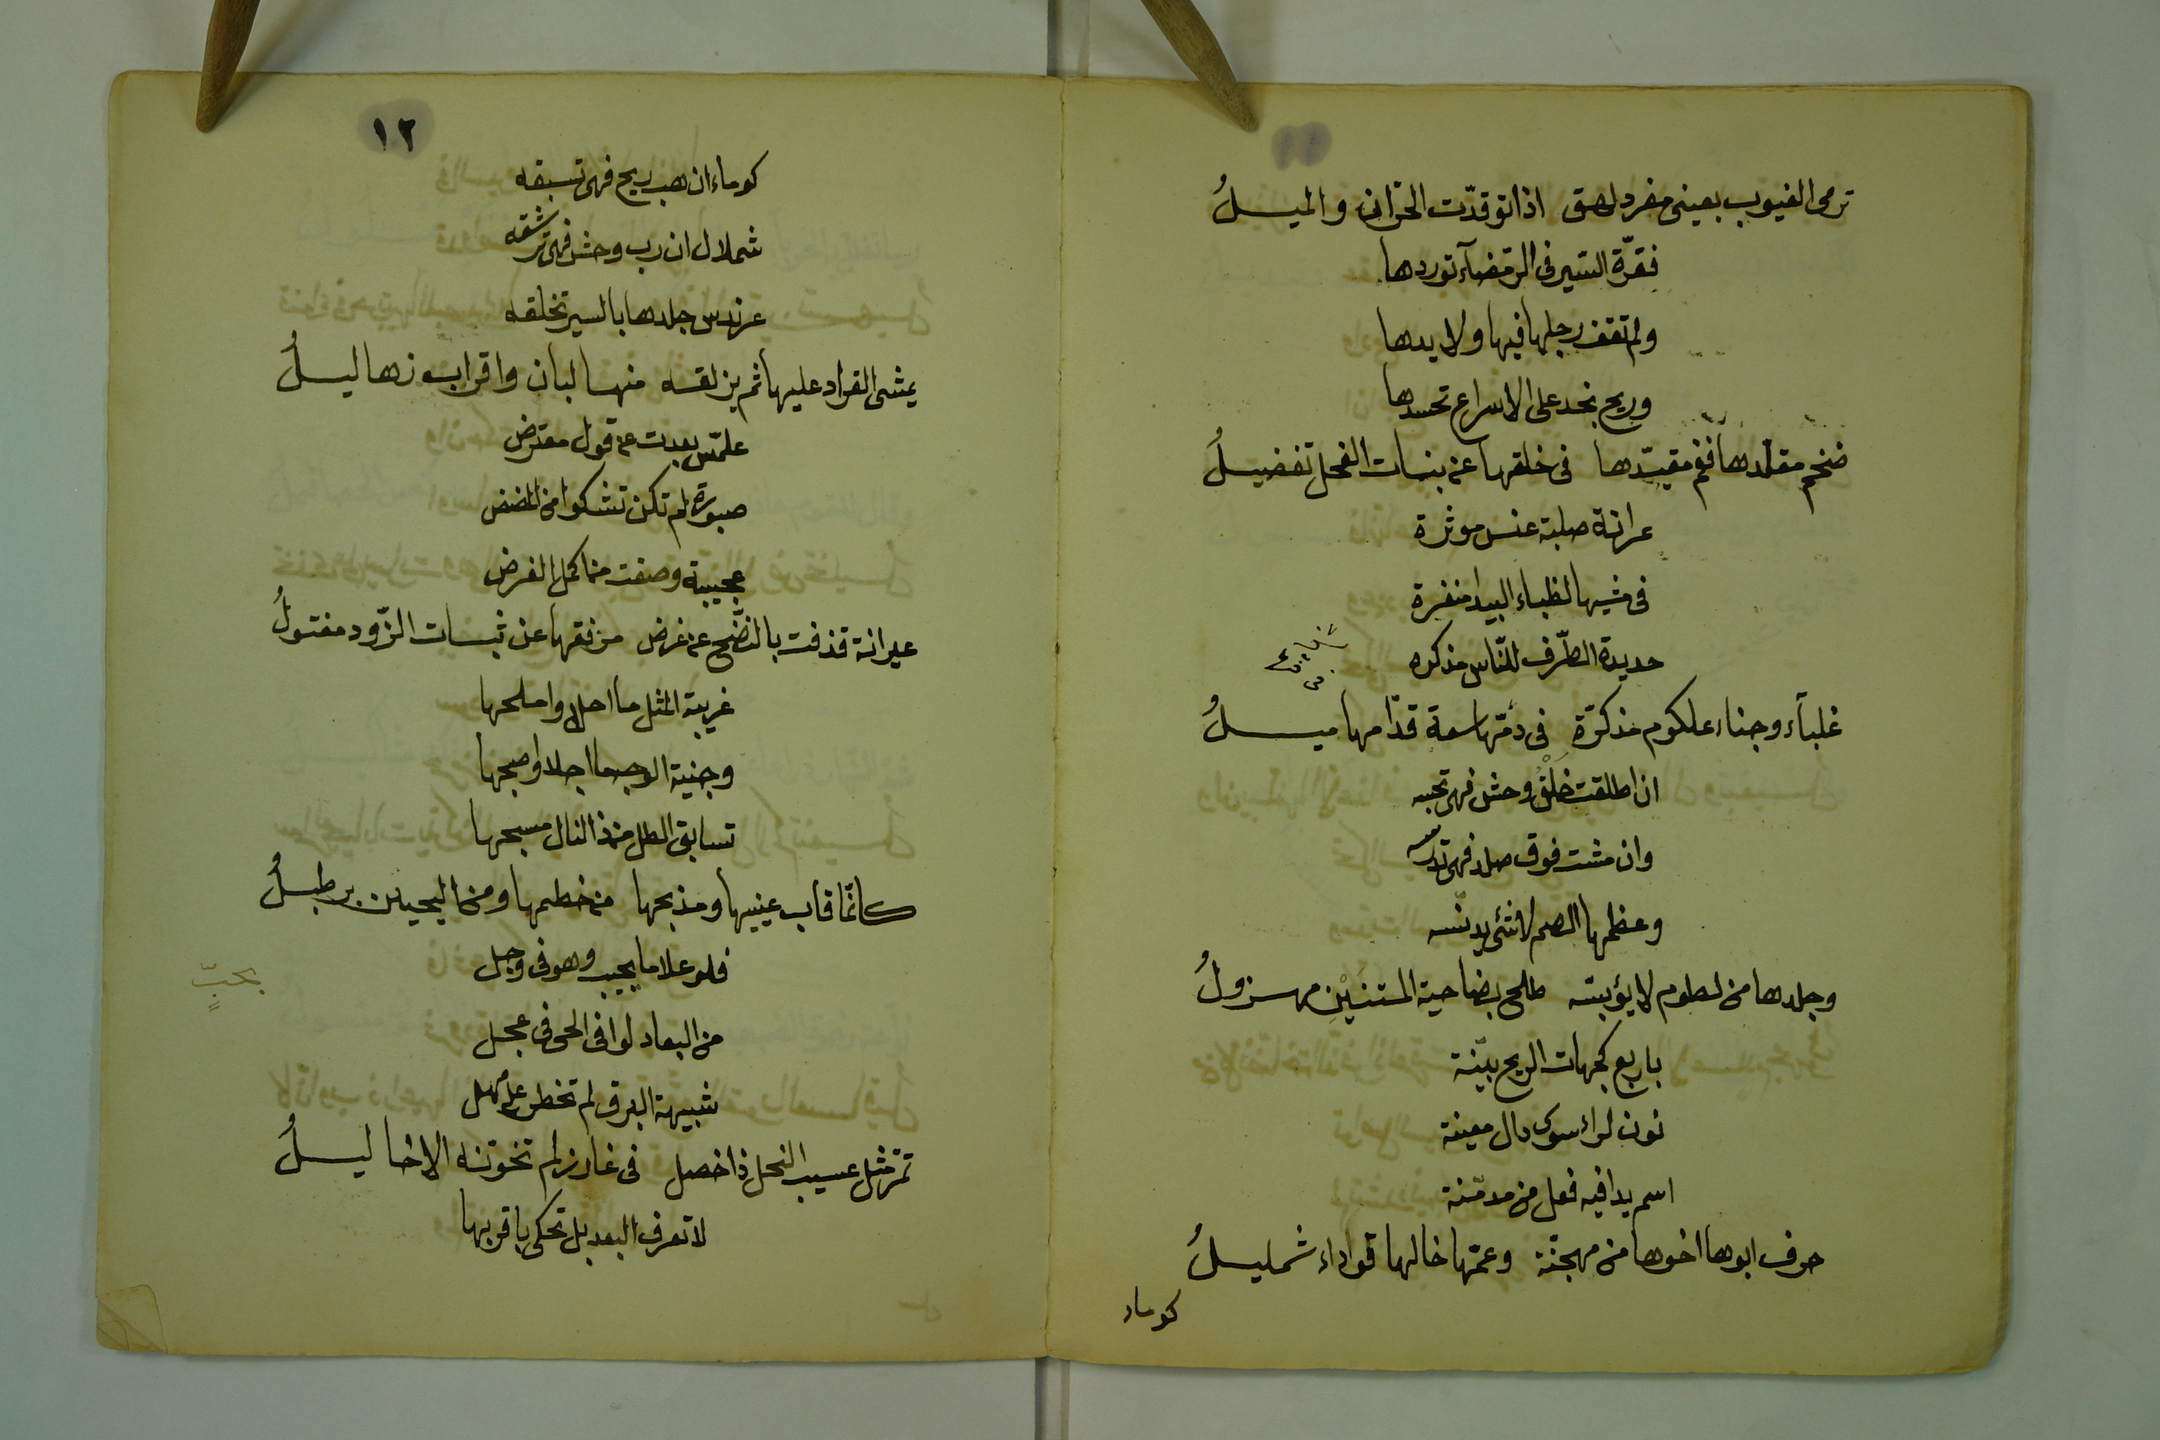 ترمى الغيوب بعينى مفرد لهق اذا توقدّت الحزّان والميــلُ
فقرّة السّير فى الرّمضآء توردها
ولم تقف رجلها فيها ولا يدها
وريح نجد على الاسراع تحسدها
ضخم مقلدها فعم مقيّدها فى خلقها عن بنات الفحل تفضيــلُ
عرانة صلبة عنس موثرة
فى مشيها لظباء البيد منفرة
حديدة الطّرف للنّاس مذكره
غلبآء وجناء علكوم مذكرّة فى دفّها سعة قدّامها ميــلُ
ان اطلقت خَلْقُ وحش فهى تحبسه
وان مشت فوق صلد فهى
وعظمها الصم لا شئ يدنّسه
وجلدها من لطوم لا يؤبسّه طلح بضاحية المتنَيْن مهــزولُ
باربع كجهات الريح بيّنة
نون لراء سوى دال معينة
اسم يدا فيه فعل من مدمّنة
حرف ابوها اخوها من مهجنّة وعمّها خالها قوداء شمليــلُ
كوماء
١٢
كوماء ان هب ريح فهى تسبقه
شملال ان رب وحش فهى ترشقه
عرندس جلدها بالسير تخلقه
يمشى القراد عليها ثم يزلقــه منهــا لبان واقراب زهاليــلُ
علمّس بعدت عن قول معترض
صبورة لم تكن تشكوا من المضض
عجيبة وصفت منا كمل الغرض
عيرانة قذفت بالنّضّح عن عرض مرفقها عن ثبــات الزّود مفتــولُ
غريبة المثل ما احلا واملحها
وجنية الوجه ما اجلا واصبحها
تسابق الطل منذ النال مسبحها
كانّما قاب عينيها ومذبحها من خطمها ومن اليحيين برطيــلُ
فلو علا ما يجيب وهو فى وجل
بحبٍّ
من البعاد لوافى الحى فى عجــل
شبيهة البرق لم تخطر على مهل
تمرّ مثل عسيب النحل ذا خصل فى غارز لم تخوّنه الاخا ليــلُ
لا تعرف البعد بل تحكى باقربها